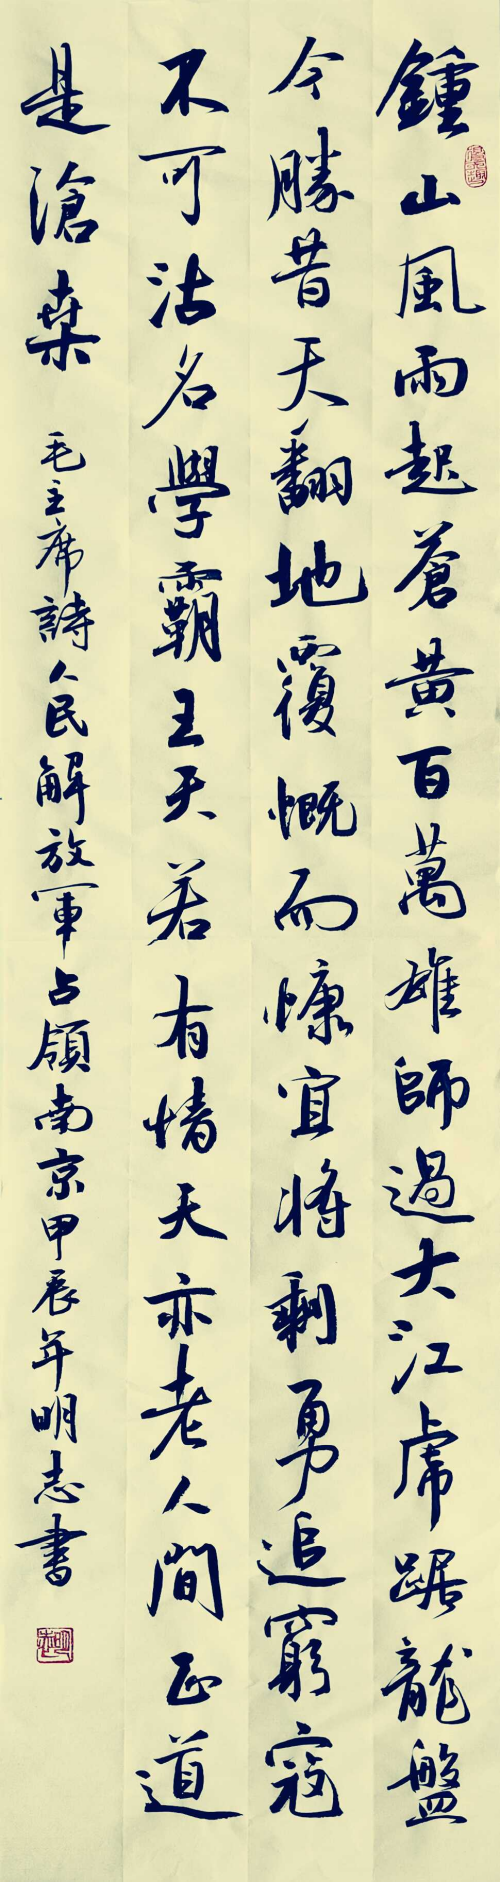 鍾山風雨起蒼黃百萬雄師過大江虎踞龍盤
今勝昔天翻地覆慨而慷宜將剩勇追窮寇
不可沽名學霸王天若有情天亦老人間正道
是滄桑
毛主席詩人民解放軍占領南京甲辰年明志書